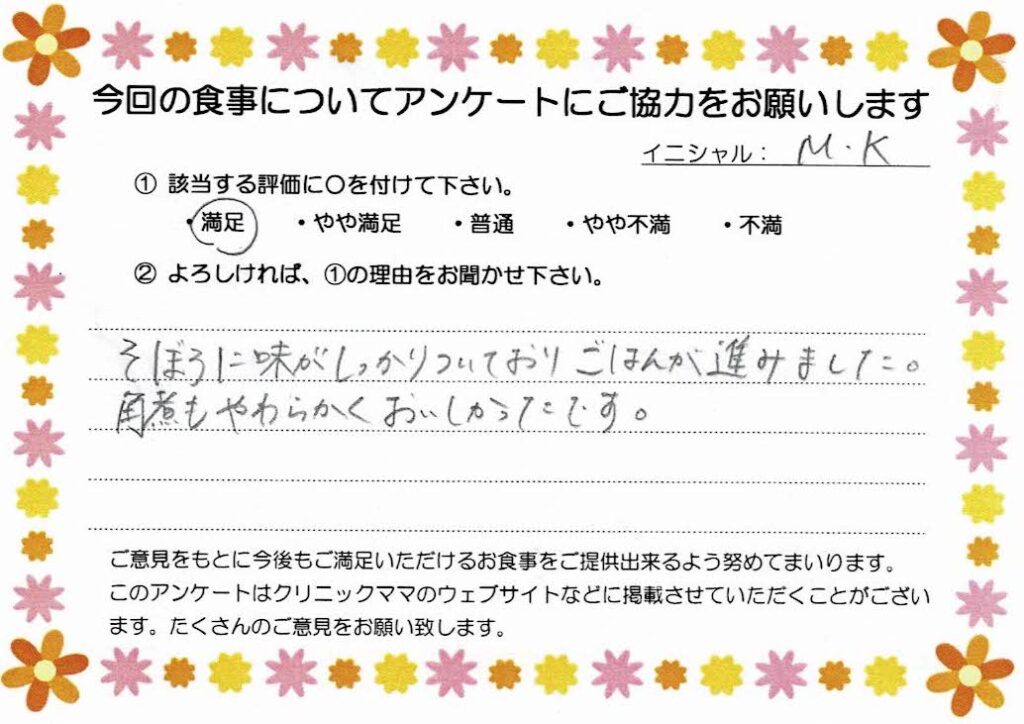 今回の食事についてアンケートにご協力をお願いします
イニシャル： M.K
① 該当する評価に〇を付けて下さい。
・満足 ・やや満足 ・普通 ・やや不満 ・不満
② よろしければ、①の理由をお聞かせ下さい。
そぼろに味がしっかりついており ごはんが進みました。
角煮もやわらかくおいしかったです。
ご意見をもとに今後もご満足いただけるお食事をご提供出来るよう努めてまいります。
このアンケートはクリニックママのウェブサイトなどに掲載させていただくことがござい
ます。たくさんのご意見をお願い致します。